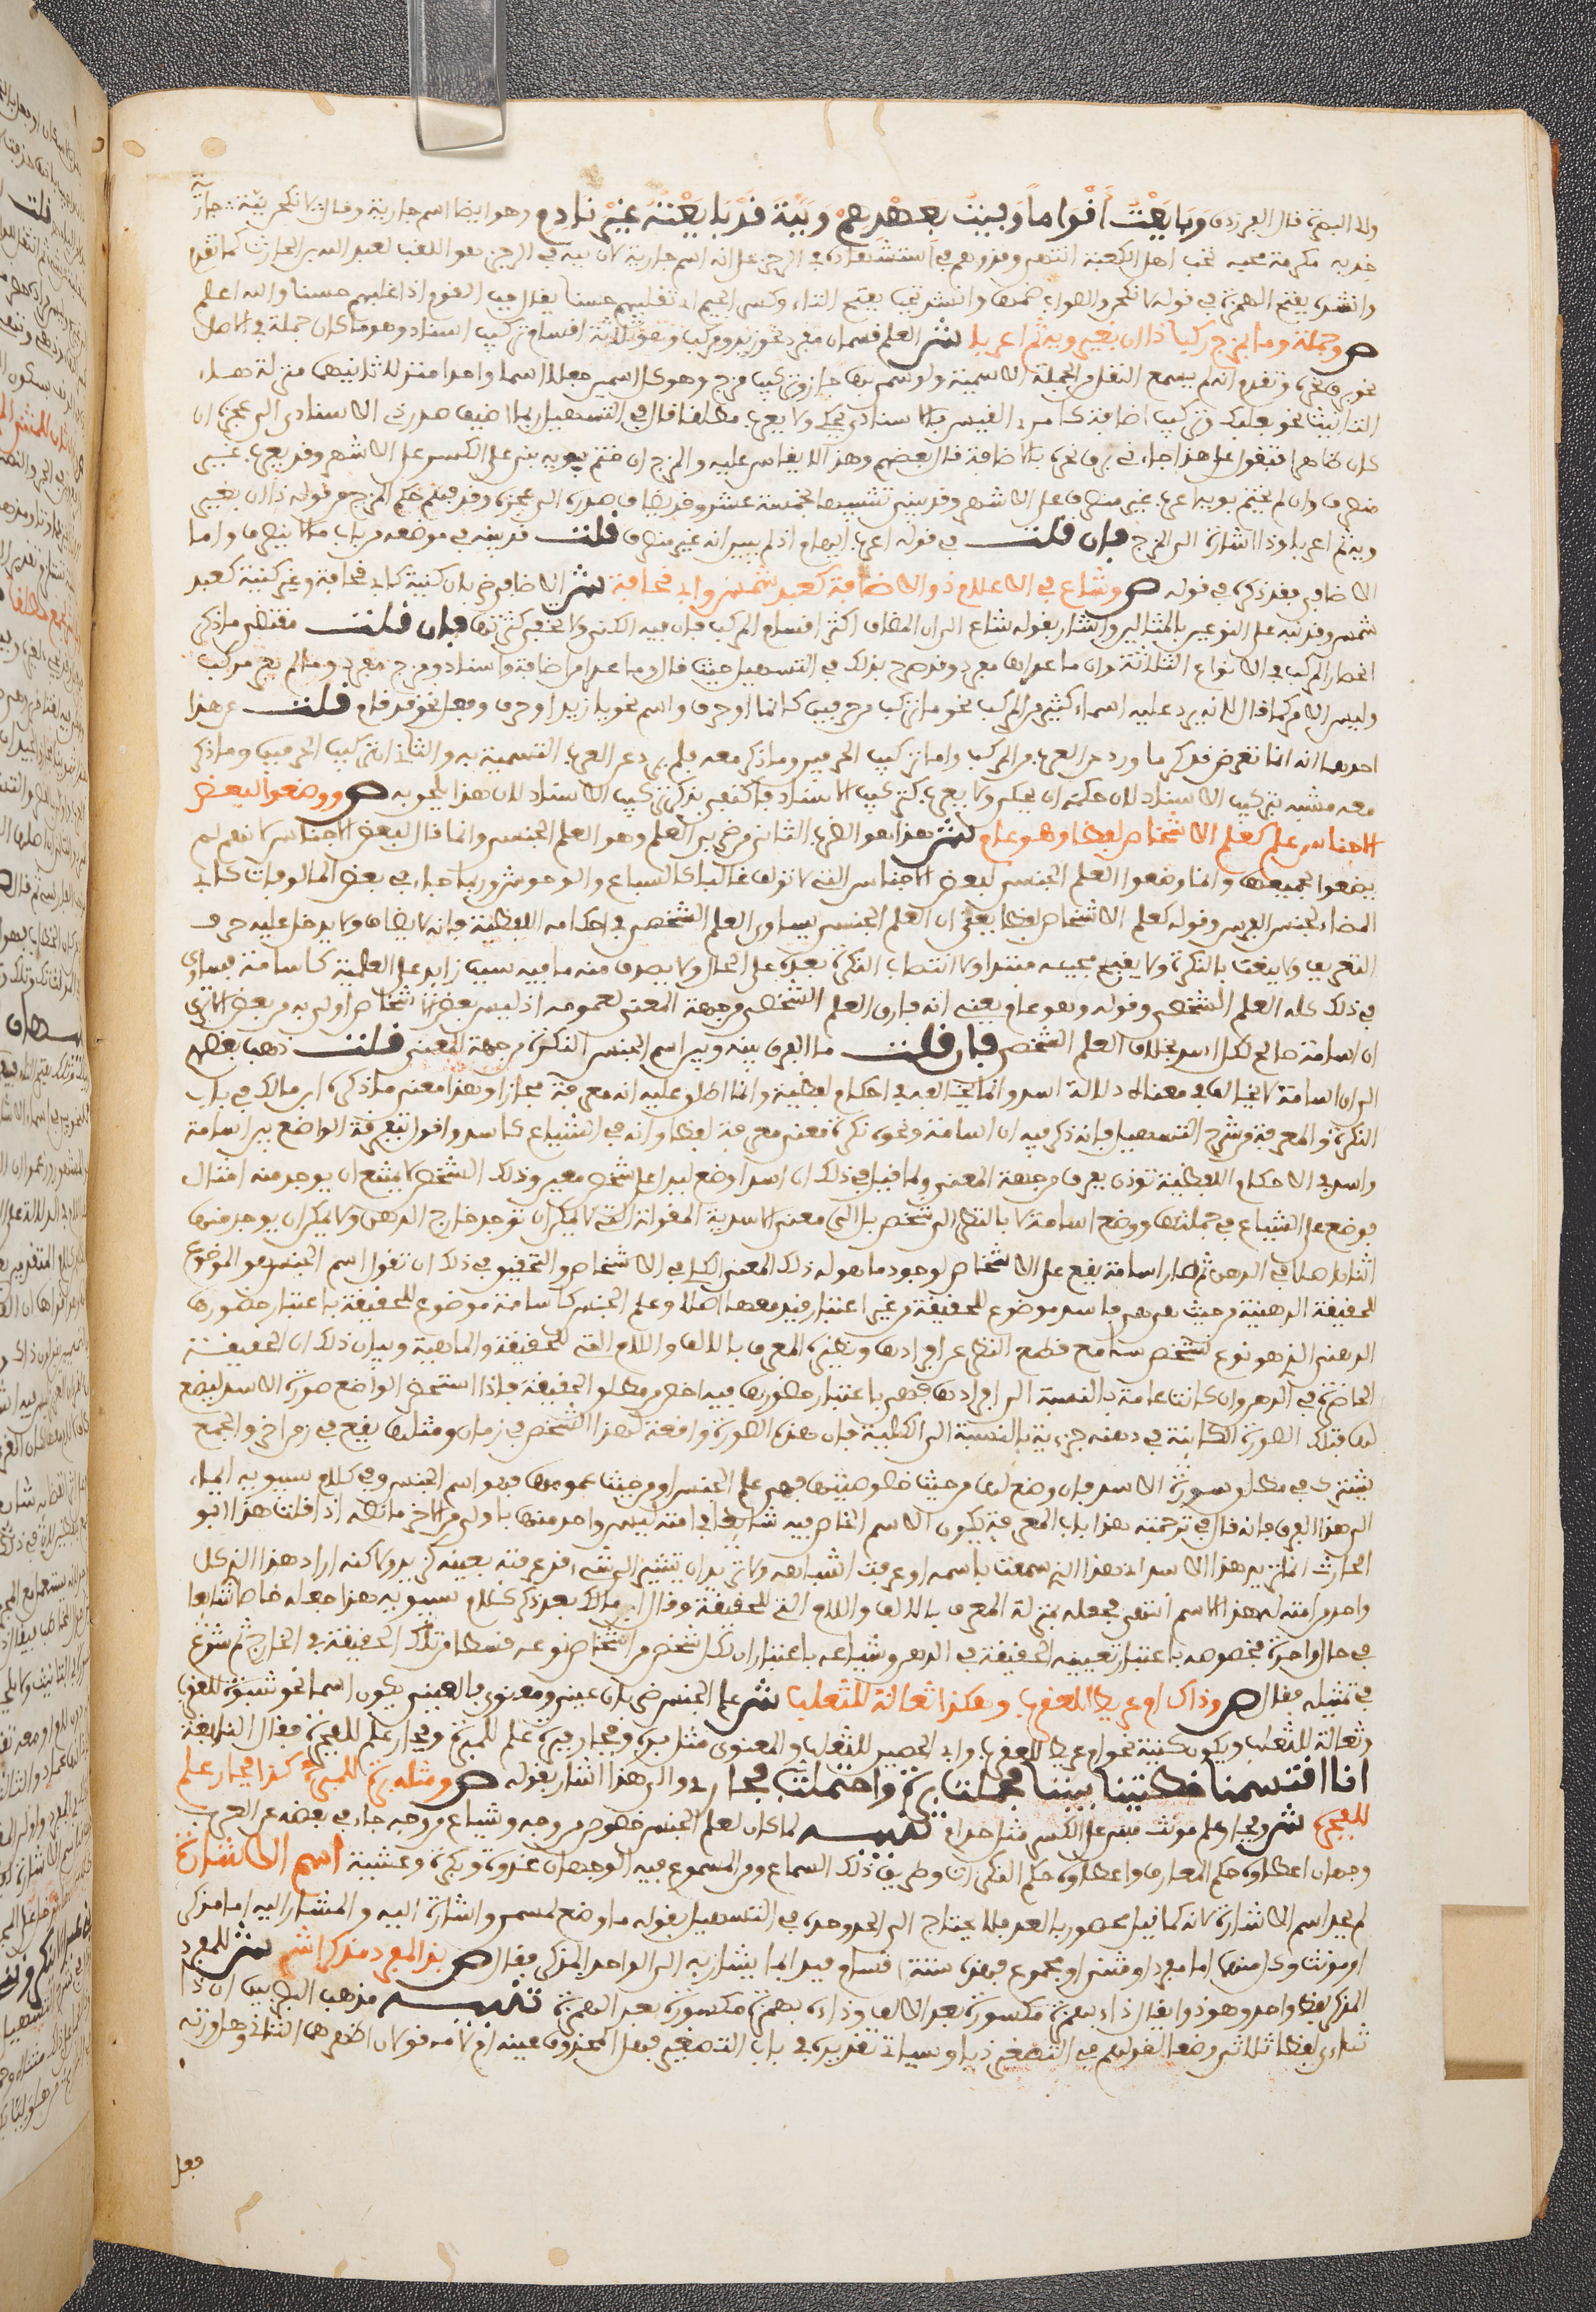 والى البصرة قال الفرزدق وَبَايَعْتُ أَقْوَامًا وَفَيْتُ بِعَهْدِهِمْ وَبَبَّةَ قَدْ بَايَعْتُهُ غَيْرَ نَادِمِ وهو ايضا اسم جارية وقال لانكحن ببّة جارية
خدبه مكرمة محبه تجب اهل الكعبة انتهى وقد وهم في استشهاده في الرجز على انه اسم جارية لان ببه في الرجز هو اللقب لعبد الله بن الحارث كما تقدم
وانشده بفتح الهمزة في قوله لانكحن والصواب ضمها وانشد تجب بفتح التاء وكسر الجيم اي تغلبهم حسنا يقال جب القوم اذا غلبهم حسنا والله اعلم
ص وجملة وما بمزج ركبا ذا ان بغير ويه تم اعربا ش العلم قسمان مفرد نحو زيد ومركب وهو ثلاثة اقسام تركيب اسناد وهو ما كان جملة في الاصل
نحو برق نحره وتقدم انه لم يسمع النقل من الجملة الاسمية ولو سمي بها جاز وتركيب مزج وهو كل اسمين جعلا اسما واحدا منزلا ثانيهما منزلة هاء
التانيث نحو بعلبك وتركيب اضافة كامرء القيس فالاسنادي يحكى ولا يعرب مطلقا قال في التسهيل وربما اضيف صدر ذي الاسناد الى عجزه ان
كان ظاهرا فتقول على هذا جاءني برق نحره بالاضافة قال بعضهم وهذا لا يقاس عليه والمزج ان ختم بويه بني على الكسر على الاشهر وقد يعرب غير
منصرف وان لم يختم بويه اعرب غير منصرف على الاشهر وقد يبنى تشبيها بخمسة عشر وقد يضاف صدره الى عجزه وقد فهم حكم المزج من قوله ذا ان بغير
ويه تم اعربا وذا اشارة الى المزج فإن قلت في قوله اعرب ابهام اذ لم يبين انه غير منصرف قلت قد بينه في موضعه من باب ما لا ينصرف واما
الاضافي فقد ذكره في قوله ص وشاع في الاعلام ذو الاضافة كعبد شمس وابي قحافة ش الاضافي ضربان كنية كابي قحافة وغير كنية كعبد
شمس وقد نبه على النوعين بالمثالين واشار بقوله شاع الى ان المضاف اكثر اقسام المركب فان فيه الكنى ولا تخفى كثرتها فإن قلت مقتضى ما ذكره
انحصار المركب في الانواع الثلاثة وان ما عداها مفرد وقد صرح بذلك في التسهيل حيث قال وما عدا من اضافة واسناد ومزج مفرد وما لم يعر مركب
وليس الامر كما قال لانه يرد عليه اسماء كثيرة من المركب نحو ما تركب من حرفين كانما او حرف واسم نحو يا زيد او حرف وفعل نحو قد قام قلت عن هذا
احدهما انه انما تعرض لذكر ما ورد عن العرب من المركب واما تركيب الحرفين وما ذكر معه فلم يرد عن العرب التسمية به والثاني ان تركيب الحرفين وما ذكر
معه مشبه بتركيب الاسناد لان حكمه ان يحكى ولا يعرب كتركيب الاسناد فاكتفى بذكر تركيب الاسناد لان هذا ملحق به ص ووضعوا لبعض
الاجناس علم كعلم الاشخاص لفظا وهو عام ش هذا هو الضرب الثاني من ضربي العلم وهو العلم الجنسي وانما قال لبعض الاجناس لانهم لم
يضعوا لجميعها وانما وضعوا العلم الجنسي لبعض الاجناس التي لا تؤلف غالبا كالسباع والوحوش وربما جاء في بعض المالوفات كابي
المضاء لجنس الفرس وقوله كعلم الاشخاص لفظا يعني ان العلم الجنسي يساوي العلم الشخصي في احكامه اللفظية فانه لا يضاف ولا يدخل عليه حرف
التعريف ولا ينعت بالنكرة ولا يقبح مجيئه مبتدا ولا انتصاب النكرة بعده على الحال ولا يصرف منه ما فيه سبب زايد على العلمية كاسامة فيساوي
في ذلك كله العلم الشخصي وقوله وهو عام يعني انه فارق العلم الشخصي من جهة المعنى لعمومه اذ ليس بعض الاشخاص اولى به من بعض الا ترى
ان اسامة صالح لكل اسد بخلاف العلم الشخصي فإن قلت ما الفرق بينه وبين اسم الجنس النكرة من جهة المعنى قلت ذهب بعضهم
الى ان اسامة لا يخالف في معناه دلالة اسد وانما يخالفه في احكام لفظية وانما اطلق عليه انه معرفة مجازا وهذا معنى ما ذكره ابن مالك في باب
النكرة والمعرفة من شرح التسهيل فانه ذكر فيه ان اسامة ونحوه نكرة معنى معرفة لفظا وانه في الشياع كاسد واقول تفرقة الواضع بين اسامة
واسد في الاحكام اللفظية تؤذن بفرق من جهة المعنى ومما قيل في ذلك ان اسدا وضع ليدل على شخص معين وذلك الشخص لا يمتنع ان يوجد منه امثال
فوضع على الشياع في جملتها ووضع اسامة لا بالنظر الى شخص بل الى معنى الاسدية المعقولة التي لا يمكن ان توجد خارج الذهن ولا يمكن ان يوجد منها
اثنان اصلا في الذهن ثم صار اسامة يقع على الاشخاص لوجود ماهو له ذلك المعنى الكلي في الاشخاص والتحقيق في ذلك ان تقول اسم الجنس هو الموضوع
للحقيقة الذهنية من حيث هي هي فاسد موضوع للحقيقة من غير اعتبار قيد معها اصلا وعلم الجنس كاسامة موضوع للحقيقة باعتبار حضورها
الذهني الذي هو نوع تشخص لها مع قطع النظر عن افرادها ونظيره المعرف بالالف واللام التي للحقيقة والماهية وبيان ذلك ان الحقيقة
الحاضرة في الذهن وان كانت عامة بالنسبة الى افرادها فهي باعتبار حضورها فيه اخص من مطلق الحقيقة فاذا استحضر الواضع صورة الاسد ليضع
لها فتلك الصورة الكاينة في ذهنه جزءية بالنسبة الى الكلية فان هذه الصورة واقعة لهذا الشخص في زمان ومثلها يقع في زمن اخر والجميع
يشترك في مطلق صورة الاسد فان وضع لها من حيث خصوصيتها فهو علم الجنس او من حيث عمومها فهو اسم الجنس وفي كلام سيبويه ايماء
الى هذا الفرق فانه قال في ترجمته هذا باب المعرفة يكون الاسم الخاص فيه شايعا في امته ليس واحد منها باولى من الاخر ما نصه اذا قلت هذا ابو
الحارث انما تريد هذا الاسد اي هذا الذي سمعت باسمه او عرفت اشباهه ولا تريد ان تشير الى شيء قد عرفته بعينه كزيد ولاكنه اراد هذا الذي كل
واحد من امته له هذا الاسم انتهى فجعله بمنزلة المعرف بالالف واللام التي للحقيقة وقال ابن مالك بعد ذكر كلام سيبويه هذا جعله خاصا شايعا
في حال واحدة فخصوصه باعتبار تعيينه الحقيقة في الذهن وشياعه باعتبار ان لكل شخص من اشخاص نوعه قسطا من تلك الحقيقة في الخارج ثم شرع
في تمثيله فقال ص وذاك ام عريط للعقرب وهكذا ثعالة للثعلب ش علم الجنس ضربان عيني ومعنوي فالعيني يكون اسما نحو شبوة للعقرب
وثعالة للثعلب ويكون كنية نحو ام عريط للعقرب وابي الحصين للثعلب والمعنوي مثل برة وفجار فبرة علم للمبرة وفجار علم للفجرة فقال النابغة
انا اقتسمنا خطتينا بيننا فحملت برة واحتملت فجار والى هذا اشار بقوله ص ومثله برة للمبرة كذا فجار علم
للفجرة ش وفجار علم مؤنث مبني على الكسر مثل حذام تنبيه لما كان لعلم الجنس خصوص من وجه وشياع من وجه جاء في بعضه عن العرب
وجهان اعطاؤه حكم المعارف واعطاؤه حكم النكرات وطريق ذلك السماع ومن المسموع فيه الوجهان غدوة وبكرة وعشية اسم الاشارة
لم يحد اسم الاشارة لانه كما قيل محصور بالعد فلا يحتاج الى الحد وحده في التسهيل بقوله ما وضع لمسمى واشارة اليه والمشار اليه اما مذكر
او مؤنث وكل منهما اما مفرد او مثنى او مجموع فهذه ستة اقسام فبدا بما يشار به الى الواحد المذكر فقال ص بذا لمفرد مذكر اشر ش للمفرد
المذكر لفظ واحد وهو ذا ويقال ذاء بهمزة مكسورة بعد الالف وذائه بهمزة مكسورة بعد الهمزة تنبيه مذهب البصريين ان ذا
ثنائي لفظا ثلاثي وضعا لقولهم في التصغير ذيا وسياتي تقديره في باب التصغير فهل المحذوف عينه او لامه قولان اظهرهما الثاني وهل وزنه
فعل